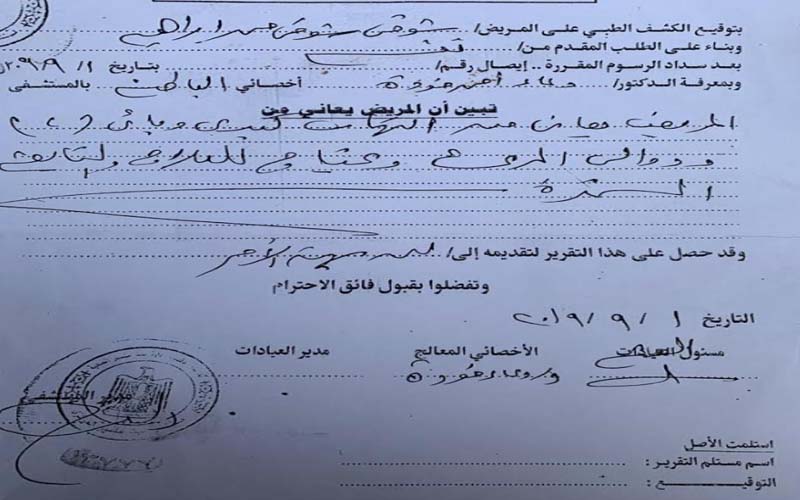 بتوقيع الكشف الطبي على المريض/ شوقى شوقى محمد ابراهيم
وبناء على الطلب المقدم من/
بعد سداد الرسوم المقررة .. إيصال رقم/ بتاريخ ١/٩/٢٠١٩
وبمعرفة الدكتور/ أحمد حمودة أخصائي الباطنة بالمستشفى
تبين أن المريض يعاني من
المريض يعانى من التهاب كبدى وبائى
ودوالى المرئ ويحتاج للعلاج والمتابعة
المستمرة
وقد حصل على هذا التقرير لتقديمه إلى/
وتفضلوا بقبول فائق الاحترام
التاريخ ١ / ٩ / ٢٠١٩
مسئول العيادات الأخصائي المعالج مدير العيادات
مدير المستشفى
استلمت الأصل
اسم مستلم التقرير :
التوقيع :